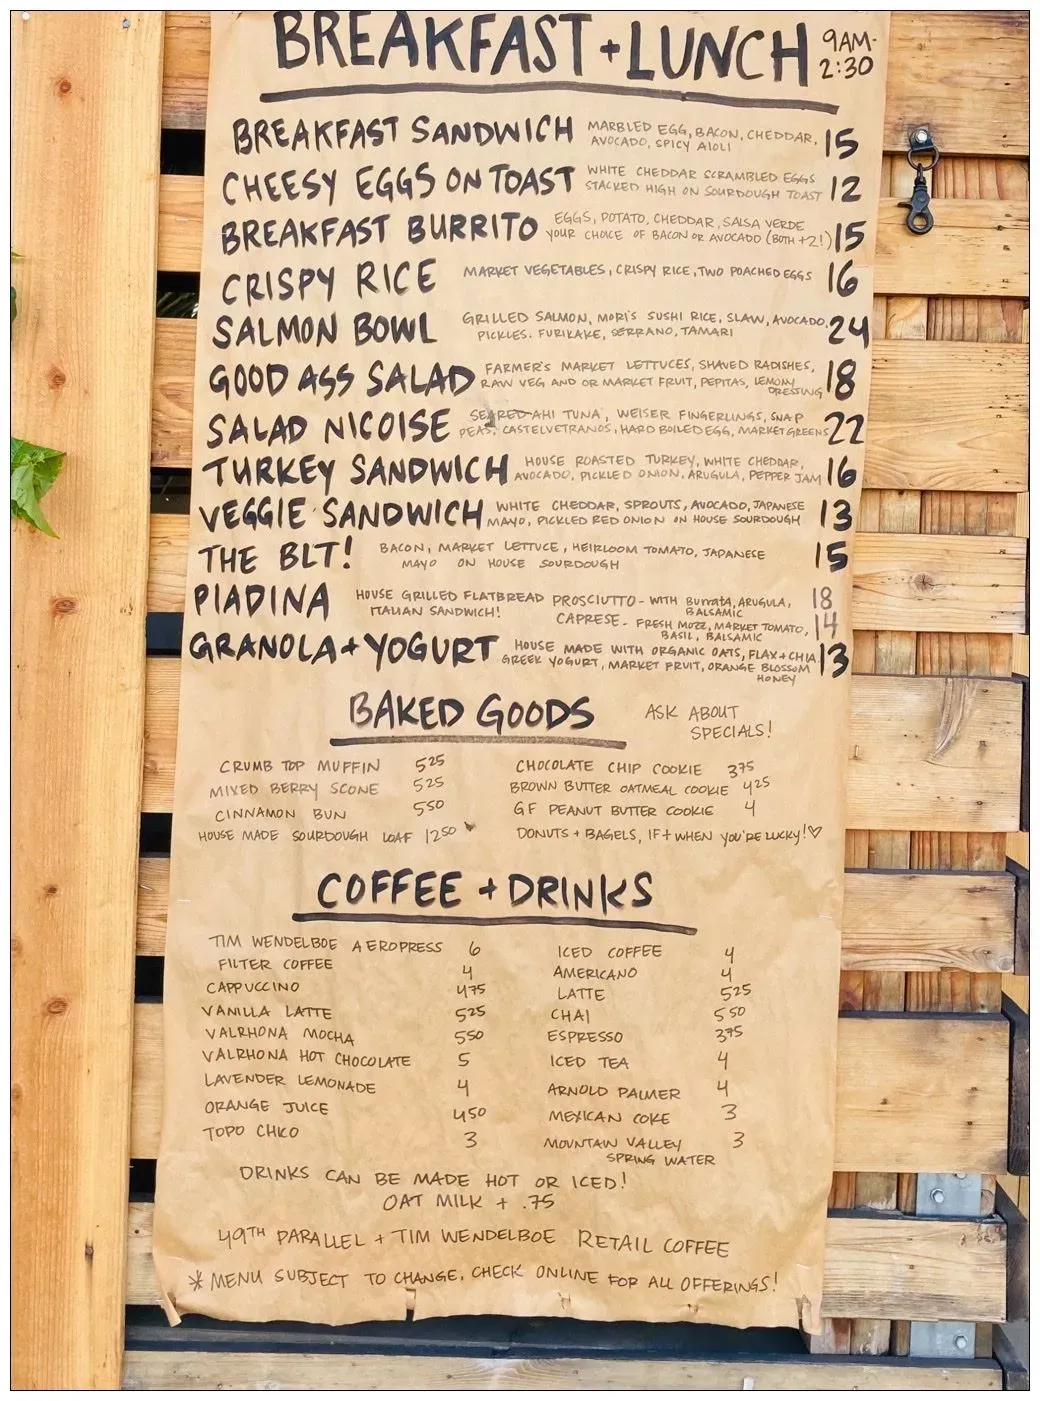 BREAKFAST + LUNCH 9AM-
2:30
BREAKFAST SANDWICH MARBLED EGG, BACON, CHEDDAR, 15
AVOCADO, SPICY AIOLI
CHEESY EGGS ON TOAST WHITE CHEDDAR SCRAMBLED EGGS 12
STACKED HIGH ON SOURDOUGH TOAST
BREAKFAST BURRITO EGGS, POTATO, CHEDDAR, SALSA VERDE 15
YOUR CHOICE OF BACON OR AVOCADO (BOTH +2!)
CRISPY RICE MARKET VEGETABLES, CRISPY RICE, TWO POACHED EGGS 16
SALMON BOWL GRILLED SALMON, MORI'S SUSHI RICE, SLAW, AVOCADO, 24
PICKLES. FURIKAKE, SERRANO, TAMARI
GOOD ASS SALAD FARMER'S MARKET LETTUCES, SHAVED RADISHES, 18
RAW VEG AND OR MARKET FRUIT, PEPITAS, LEMONY
DRESSING
SALAD NICOISE SEARED AHI TUNA, WEISER FINGERLINGS, SNAP 22
PEAS, CASTELVETRANOS, HARD BOILED EGG, MARKET GREENS
TURKEY SANDWICH HOUSE ROASTED TURKEY, WHITE CHEDDAR, 16
AVOCADO, PICKLED ONION, ARUGULA, PEPPER JAM
VEGGIE SANDWICH WHITE CHEDDAR, SPROUTS, AVOCADO, JAPANESE 13
MAYO, PICKLED RED ONION ON HOUSE SOURDOUGH
THE BLT! BACON, MARKET LETTUCE, HEIRLOOM TOMATO, JAPANESE 15
MAYO ON HOUSE SOURDOUGH
PIADINA HOUSE GRILLED FLATBREAD PROSCIUTTO - WITH BURRATA, ARUGULA, 18
ITALIAN SANDWICH! BALSAMIC
CAPRESE - FRESH MOZZ, MARKET TOMATO, 14
BASIL, BALSAMIC
GRANOLA + YOGURT HOUSE MADE WITH ORGANIC OATS, FLAX + CHIA 13
GREEK YOGURT, MARKET FRUIT, ORANGE BLOSSOM
HONEY
BAKED GOODS ASK ABOUT
SPECIALS!
CRUMB TOP MUFFIN 525 CHOCOLATE CHIP COOKIE 375
MIXED BERRY SCONE 525 BROWN BUTTER OATMEAL COOKIE 425
CINNAMON BUN 550 GF PEANUT BUTTER COOKIE 4
HOUSE MADE SOURDOUGH LOAF 1250 DONUTS + BAGELS, IF + WHEN YOU'RE LUCKY! ♡
COFFEE + DRINKS
TIM WENDELBOE AEROPRESS 6 ICED COFFEE 4
FILTER COFFEE 4 AMERICANO 4
CAPPUCCINO 475 LATTE 525
VANILLA LATTE 525 CHAI 550
VALRHONA MOCHA 550 ESPRESSO 375
VALRHONA HOT CHOCOLATE 5 ICED TEA 4
LAVENDER LEMONADE 4 ARNOLD PALMER 4
ORANGE JUICE 450 MEXICAN COKE 3
TOPO CHICO 3 MOUNTAIN VALLEY 3
SPRING WATER
DRINKS CAN BE MADE HOT OR ICED!
OAT MILK + .75
49TH PARALLEL + TIM WENDELBOE RETAIL COFFEE
* MENU SUBJECT TO CHANGE, CHECK ONLINE FOR ALL OFFERINGS!